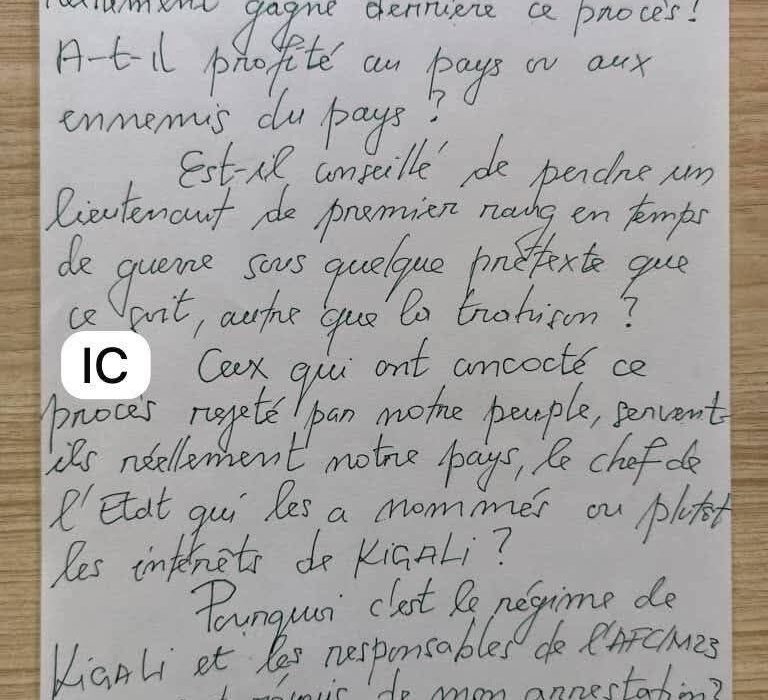 gagné dernière ce procès !
A-t-il profité au pays ou aux
ennemis du pays ?
Est-il conseillé de perdre un
lieutenant de premier rang en temps
de guerre sous quelque prétexte que
ce soit, autre que la trahison ?
IC Ceux qui ont concocté ce
procès rejeté par notre peuple, servent-
ils réellement notre pays, le chef de
l'Etat qui les a nommés ou plutôt
les intérêts de KIGALI ?
Pourquoi c'est le régime de
KIGALI et les responsables de l'AFC/M23
de mon arrestation ?